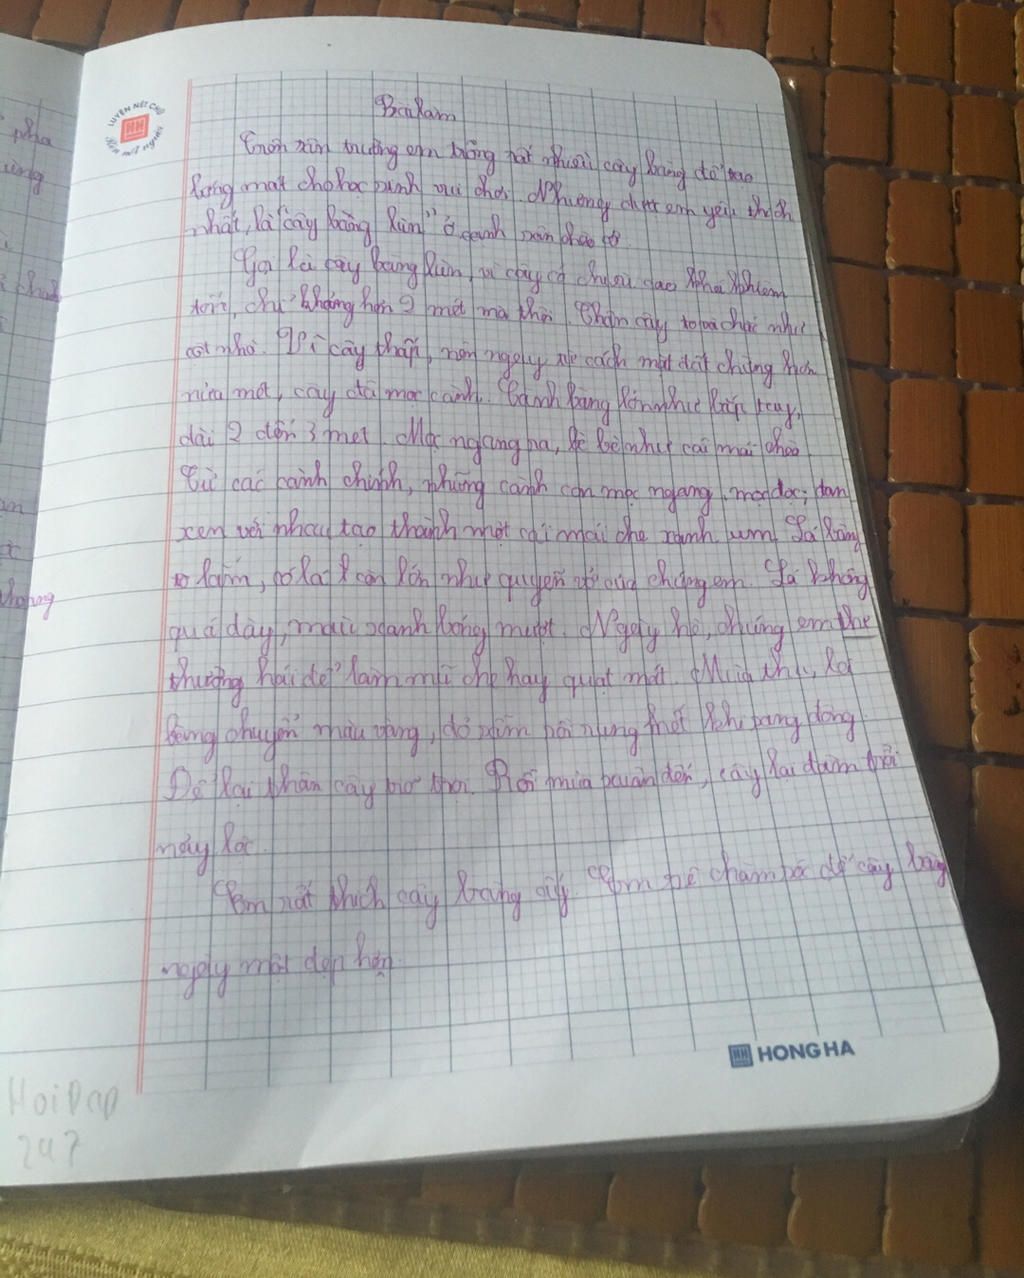 LUYỆN NÉT CHỮ
Rèn nết người
Bài làm
Trên sân trường em trồng rất nhiều cây bàng để tạo
bóng mát cho học sinh vui chơi. Nhưng em yêu thích
nhất, là "cây bàng lùn" ở cạnh sân chào cờ.
Gọi là cây bàng lùn, vì cây có chiều cao khá khiêm
tốn, chỉ khoảng hơn 2 mét mà thôi. Thân cây to và chắc như
cột nhà. Vì cây thấp, nên ngay từ cách mặt đất chừng hơn
nửa mét, cây đã mọc cành. Cành bàng lớn như bắp tay,
dài 2 đến 3 mét. Mọc ngang ra, như cái mái chèo
Từ các cành chính, những cành con mọc ngang, mọc dọc, đan
xen với nhau tạo thành một cái mái che xanh um. Lá bàng
to lắm, có lá còn lớn như quyển vở của chúng em. Lá không
quá dày, màu xanh bóng mượt. Ngày hè, chúng em the
thường hái để làm mũ che hay quạt mát. Mùa thu, lá
bàng chuyển màu vàng, đỏ sẫm rồi rụng hết khi sang đông
Để lại thân cây trơ trọi. Rồi mùa xuân đến, cây lại đâm chồi
nảy lộc.
Em rất thích cây bàng ấy. Em sẽ chăm sóc để cây bàng
ngày một đẹp hơn.
HONG HA
HoiDap
247
pha